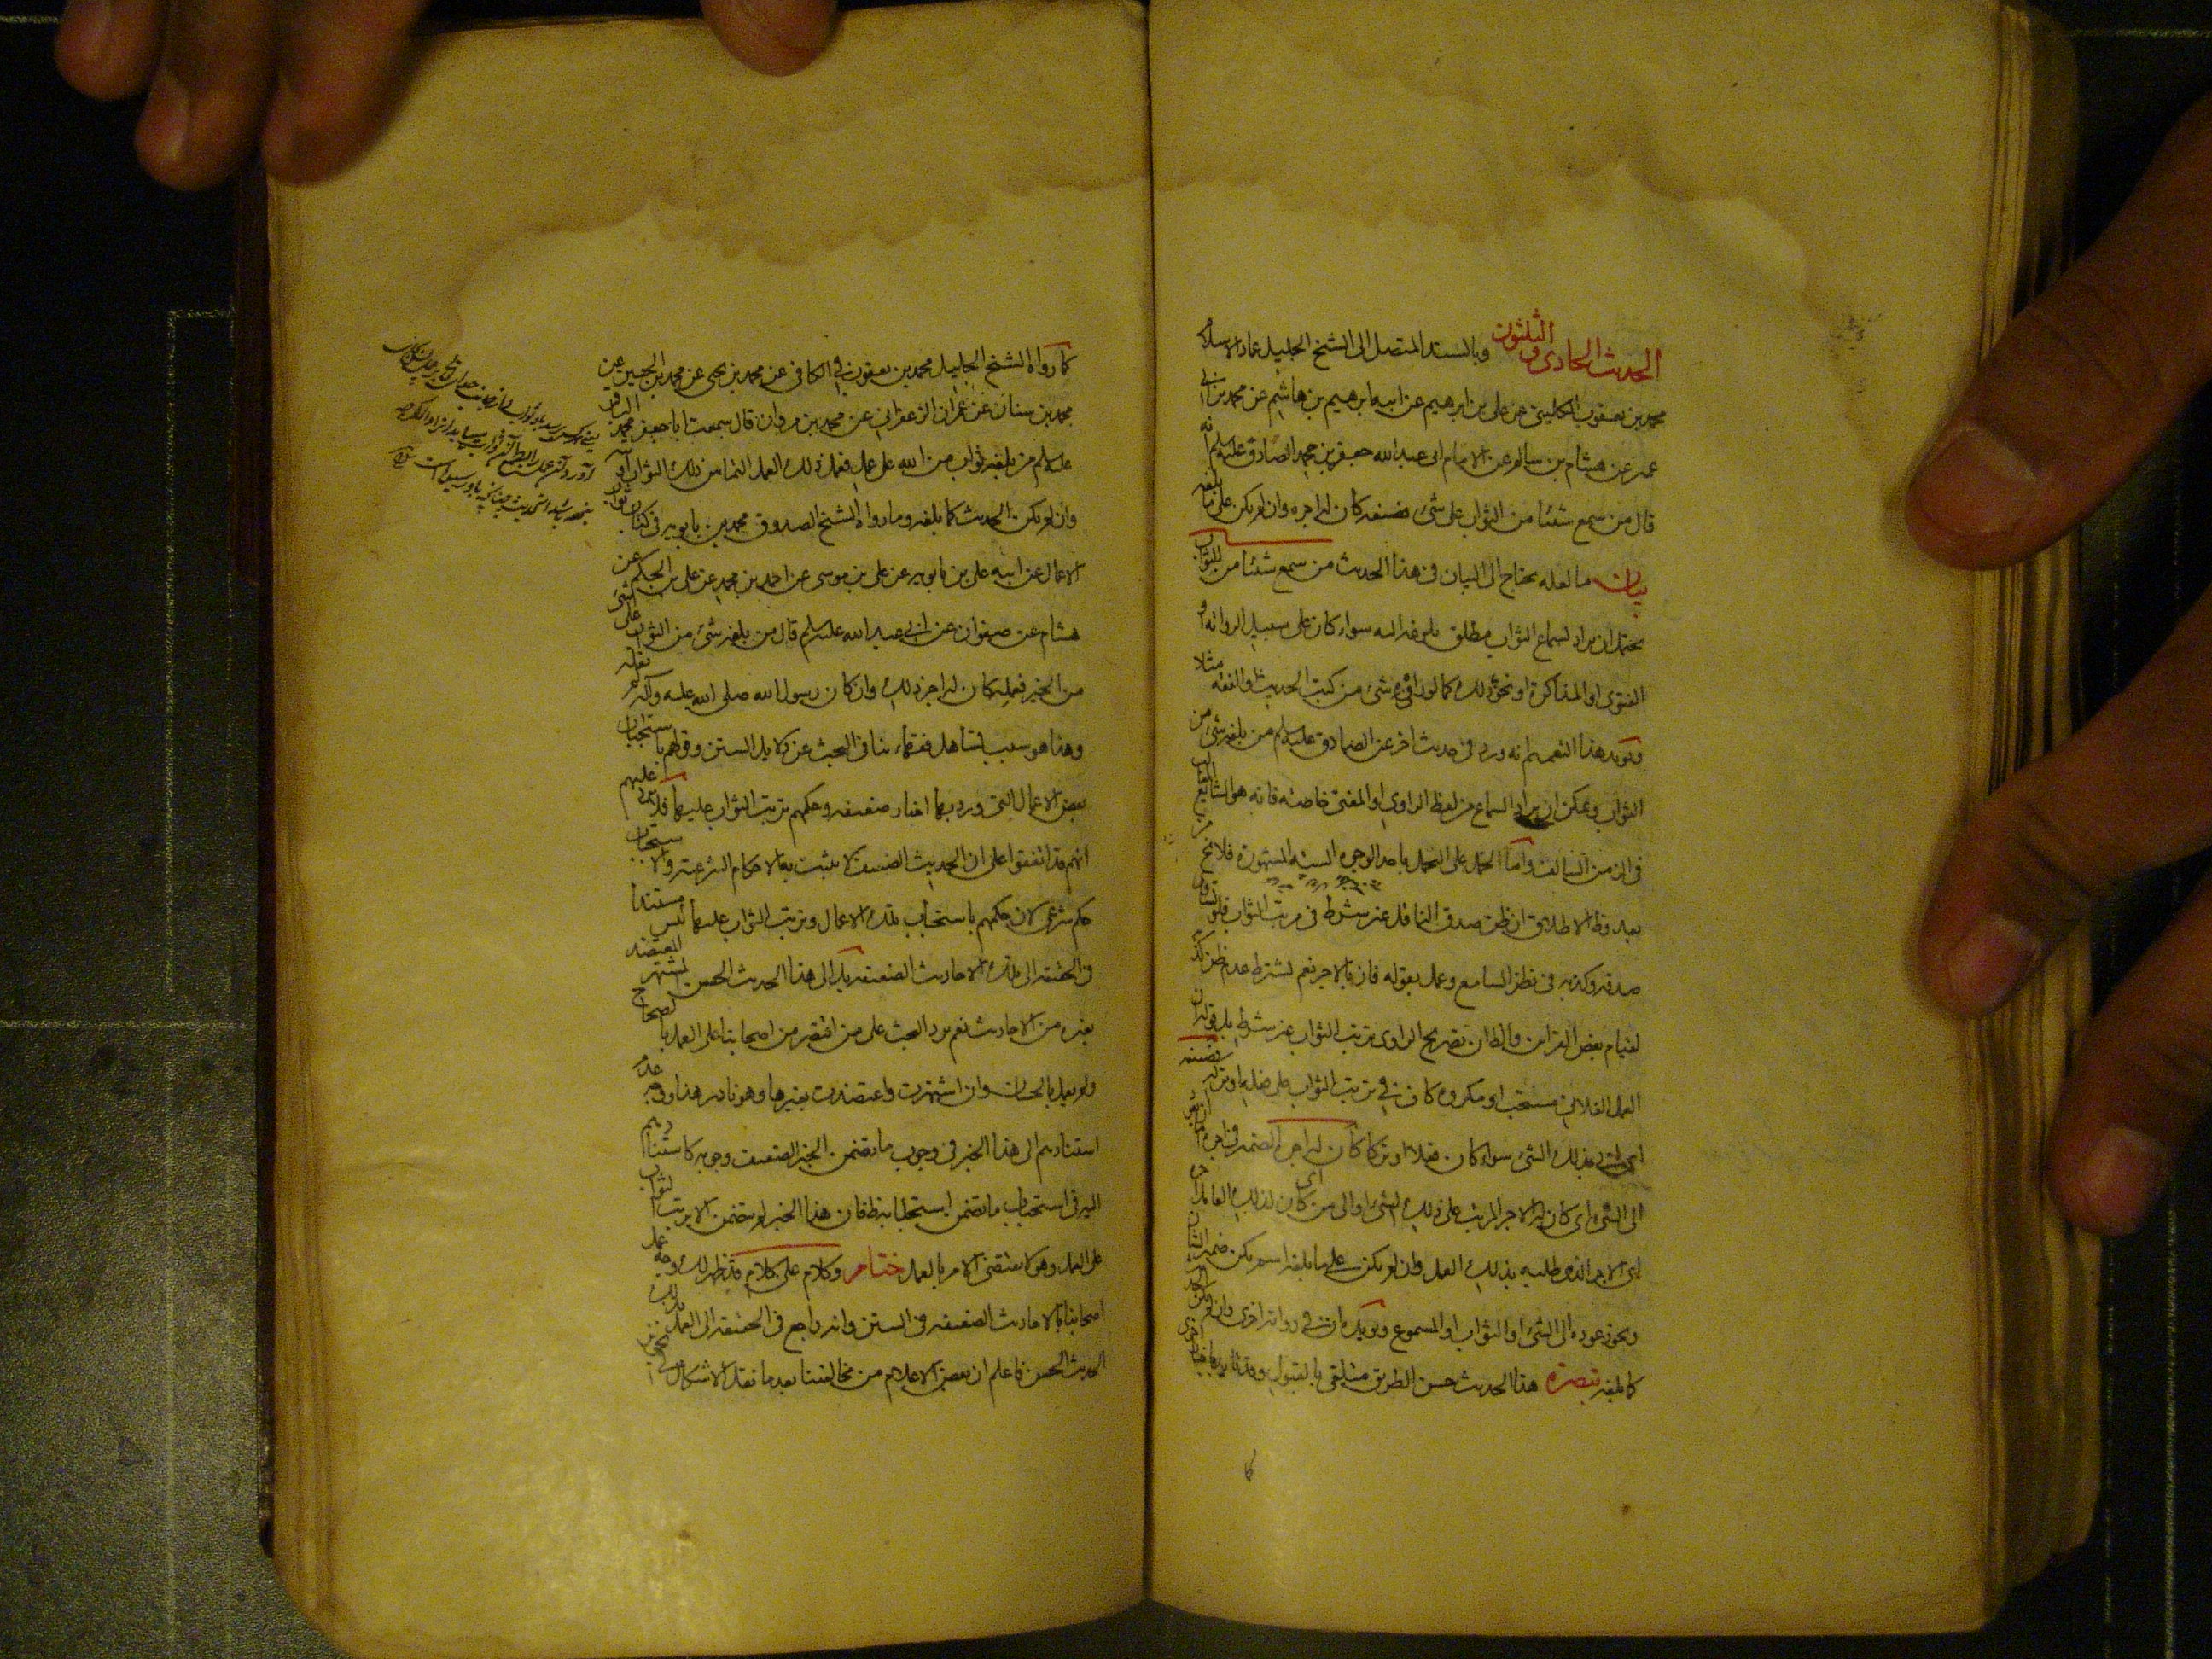 الحديث الحادي و الثلثون وبالسند المتصل الى الشيخ الجليل عماد الاسلام
محمد بن يعقوب الكليني عن علي بن ابرهيم عن ابيه ابرهيم بن هاشم عن محمد بن ابي
عمير عن هشام بن سالم عن الامام ابي عبد الله جعفر بن محمد الصادق عليه السلم انه
قال من سمع شيئا من الثواب على شئ فصنعه كان له اجره وان لم يكن على ما بلغه
بيان ما لعله يحتاج الى البيان في هذا الحديث من سمع شيئا من الثواب
يحتمل ان يراد بسماع الثواب مطلق بلوغه اليه سواء كان على سبيل الرواية او
الفتوى او المذاكرة او نحو ذلك كما لو راه في شئ من كتب الحديث او الفقه مثلا
ويؤيد هذا التعميم انه ورد في حديث اخر عن الصادق عليه السلم من بلغه شئ من
الثواب ويمكن ان يراد السماع من لفظ الراوي او المفتي خاصة فانه هو الشائع الغالب
في الزمن السالف واما الحمل على التحمل باحد الوجوه الستة المشهورة فلا يخ من
بعد وظ الاطلاق ان ظن صدق الناقل غير شرط في ترتب الثواب فلو تساوى
صدقه وكذبه في نظر السامع وعمل بقوله فاز بالاجر نعم يشترط عدم ظن كذبه
لقيام بعض القراين والظ ان تصريح الراوي بترتب الثواب غير شرط بل قوله ان
العمل الفلاني مستحب او مكروه كاف في ترتب الثواب على فعله او تركه فصنعه
اي اتى بذلك الشئ سواء كان فعلا او تركا كان له اجره الضمير في اجره اما ان يعود
الى الشئ اي كان له الاجر المرتب على ذلك الشئ او الى من اي كان لذلك العامل اجره
اي الاجر الذي طلبه بذلك العمل وان لم يكن على ما بلغه اسم يكن ضمير الشان
ويجوز عوده الى الشئ او الثواب او المسموع ويؤيده ان في رواية اخرى وان لم يكن الحديث
كما بلغه تبصرة هذا الحديث حسن الطريق متلقى بالقبول وقد تايد باخبار اخرى
كا
كما رواه الشيخ الجليل محمد بن يعقوب في الكافي عن محمد بن يحيى عن محمد بن الحسين عن
محمد بن سنان عن عمران الزعفراني عن محمد بن مروان قال سمعت ابا جعفر محمد الباقر
عليه السلم من بلغه ثواب من الله على عمل فعمل ذلك العمل التماس ذلك الثواب اوتيه
وان لم يكن الحديث كما بلغه وما رواه الشيخ الصدوق محمد بن بابويه في كتاب ثواب
الاعمال عن ابيه علي بن بابويه عن علي بن موسى عن احمد بن محمد عن علي بن الحكم عن
هشام عن صفوان عن ابي عبد الله عليه السلم قال من بلغه شئ من الثواب على شئ
من الخير فعمله كان له اجر ذلك وان كان رسول الله صلى الله عليه وآله لم يقله
وهذا هو سبب تساهل فقهائنا في البحث عن دلايل السنن وقولهم باستحباب
بعض الاعمال التي ورد بها اخبار ضعيفة وحكمهم بترتب الثواب عليها فلا يرد عليهم
انهم قد اتفقوا على ان الحديث الضعيف لا يثبت به الاحكام الشرعية والاستحباب
حكم شرعي لان حكمهم باستحباب تلك الاعمال وترتب الثواب عليها ليس مستندا
في الحقيقة الى تلك الاحاديث الضعيفة بل الى هذا الحديث الحسن المشتهر المعتضد
بغيره من الاحاديث نعم يرد البحث على من اقتصر من اصحابنا على العمل بالصحاح
ولم يعمل بالحسان وان اشتهرت واعتضدت بغيرها وهو نادر هذا ووجه عدم
استنادهم الى هذا الخبر في وجوب ما تضمن الخبر الضعيف وجوبه كاستنادهم
اليه في استحباب ما تضمن استحبابه ظ فان هذا الخبر لم يتضمن الا ترتب الثواب
على العمل وهو لا يقتضي الامر بالعمل ختام وكلام على كلام قد ظهر لك وجه عمل
اصحابنا بالاحاديث الضعيفة في السنن وانه راجع في الحقيقة الى العمل بذلك
الحديث الحسن فاعلم ان بعض الاعلام من مخالفينا بعد ما نقل الاشكال في تجويز